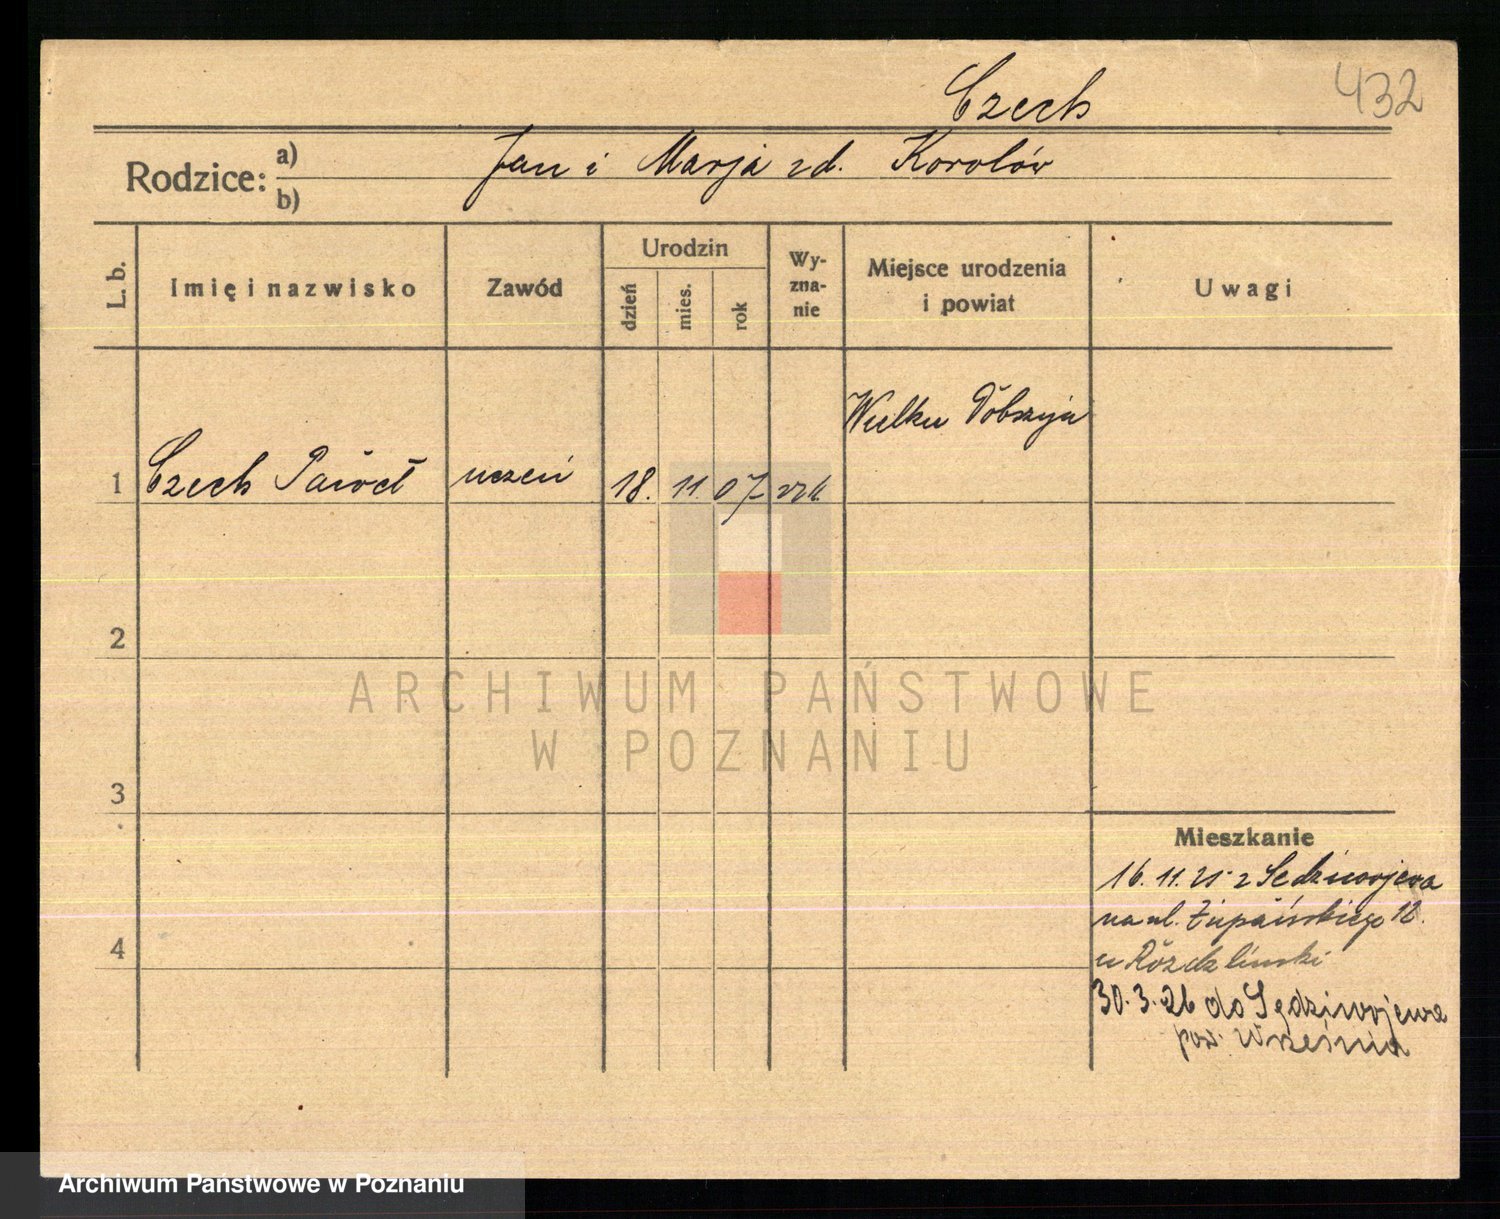 Czech
432
Rodzice: a) b)
Jan i Marja zd. Korolów
L. b.
Imię i nazwisko
Zawód
Urodzin
dzień
mies.
rok
Wy-
zna-
nie
Miejsce urodzenia
i powiat
Uwagi
1
Czech Paweł
uczeń
18.
11.
07
rzk.
2
3
4
Mieszkanie
16.11.25 z Sędziwojewa
na ul. Żupańskiego 12.
u Rózdzliński
30.3.26 do Sędziwojewa
pow. Wrześnią
ARCHIWUM PAŃSTWOWE
W POZNANIU
Archiwum Państwowe w Poznaniu